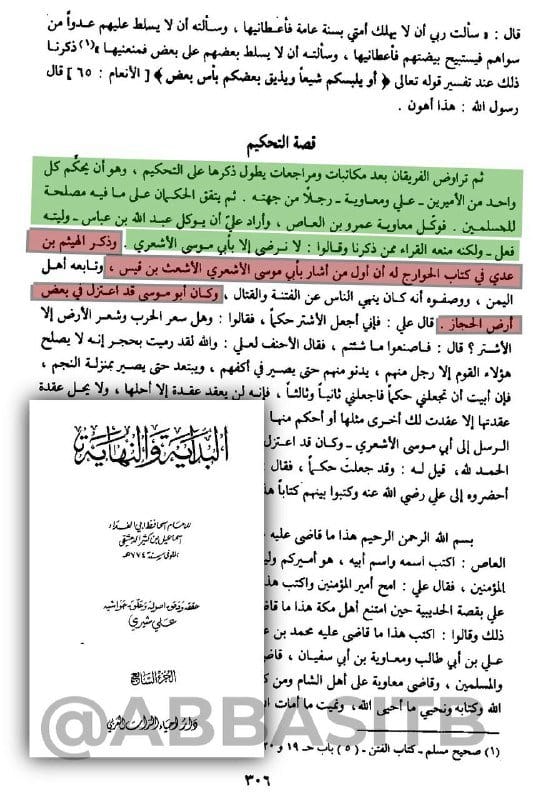 قال : « سألت ربي أن لا يهلك أمتي بسنة عامة فأعطانيها ، وسألته أن لا يسلط عليهم عدواً من
سواهم فيستبيح بيضتهم فأعطانيها ، وسألته أن لا يسلط بعضهم على بعض فمنعنيها »(١) ذكرنا
ذلك عند تفسير قوله تعالى ﴿ أو يلبسكم شيعاً ويذيق بعضكم بأس بعض ﴾ [ الأنعام : ٦٥ ] قال
رسول الله : هذا أهون .
قصة التحكيم
ثم تراوض الفريقان بعد مكاتبات ومراجعات يطول ذكرها على التحكيم ، وهو أن يحكّم كل
واحد من الأميرين - علي ومعاوية - رجلاً من جهته . ثم يتفق الحكمان على ما فيه مصلحة
للمسلمين . فوكّل معاوية عمرو بن العاص ، وأراد عليّ أن يوكل عبد الله بن عباس - وليته
فعل - ولكنه منعه القراء ممن ذكرنا وقالوا : لا نرضى إلا بأبي موسى الأشعري . وذكر الهيثم بن
عدي في كتاب الخوارج له أن أول من أشار بأبي موسى الأشعري الأشعث بن قيس ، وتابعه أهل
اليمن ، ووصفوه أنه كان ينهي الناس عن الفتنة والقتال ، وكان أبو موسى قد اعتزل في بعض
أرض الحجاز . قال علي : فإني أجعل الأشتر حكماً ، فقالوا : وهل سعر الحرب وشعر الأرض إلا
الأشتر ؟ قال : فاصنعوا ما شئتم ، فقال الأحنف لعلي : والله لقد رميت بحجر إنه لا يصلح
هؤلاء القوم إلا رجل منهم ، يدنو منهم حتى يصير في أكفهم ، ويبتعد حتى يصير بمنزلة النجم ،
فإن أبيت أن تجعلني حكماً فاجعلني ثانياً وثالثاً ، فإنه لن يعقد عقدة إلا أحلها ، ولا يحل عقدة
عقدتها إلا عقدت لك أخرى مثلها أو أحكم منها
الرسل إلى أبي موسى الأشعري - وكان قد اعتزل
الحمد لله ، قيل له : وقد جعلت حكماً ، فقال
أحضروه إلى علي رضي الله عنه وكتبوا بينهم كتاباً
بسم الله الرحمن الرحيم هذا ما قاضى عليه
العاص : اكتب اسمه واسم أبيه ، هو أميركم
المؤمنين ، فقال علي : امح أمير المؤمنين واكتب هذا
علي بقصة الحديبية حين امتنع أهل مكة هذا ما
ذلك وقالوا : اكتب هذا ما قاضى عليه محمد بن
علي بن أبي طالب ومعاوية بن أبي سفيان ،
والمسلمين ، وقاضى معاوية على أهل الشام ومن
الله وكتابه ونحيي ما أحيى الله ، ونميت ما أمات
(١) صحيح مسلم - كتاب الفتن - (٥) باب ح ١٩ و ٢٠
٣٠٦
البداية والنهاية
للامام الحافظ ابي الفداء
اسماعيل بن كثير الدمشقي
المتوفى سنة ٧٧٤ هـ
حققه ودقق اصوله وعلق حواشيه
علي شيري
الجزء السابع
دار احياء التراث العربي
@ABBASITB